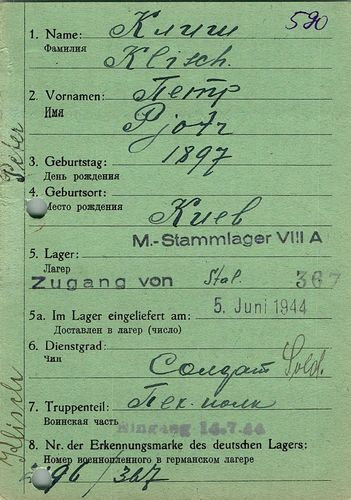 590
1. Name: Клиш
Фамилия
Klisch.
2. Vornamen: Петр
Имя
Pjotr
3. Geburtstag: 1897
День рождения
4. Geburtsort:
Место рождения
Киев
M.-Stammlager VIII A
5. Lager:
Лагер
Zugang von Stal. 367
5. Juni 1944
5a. Im Lager eingeliefert am:
Доставлен в лагер (число)
6. Dienstgrad:
Чин
Солдат Sold.
7. Truppenteil: Пех. полк
Воинская часть
Eingang 14.7.44
8. Nr. der Erkennungsmarke des deutschen Lagers:
Номер военнопленного в германском лагере
/367
Peter
Klisch